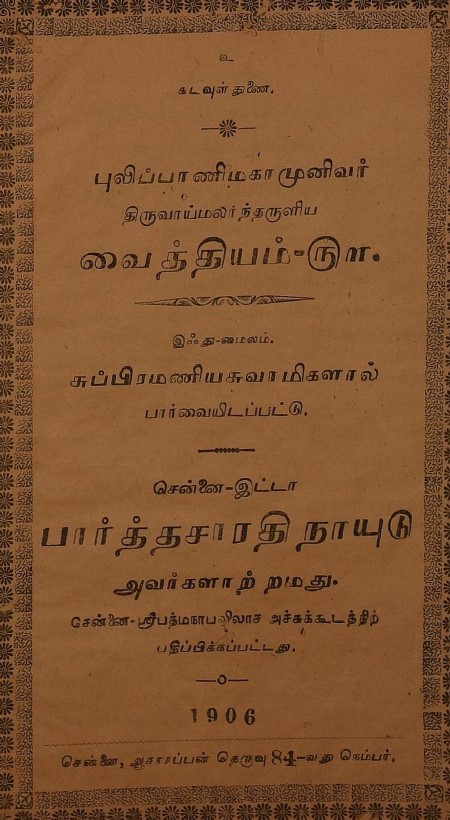 உ
கடவுள் துணை.
புலிப்பாணிமகாமுனிவர்
திருவாய்மலர்ந்தருளிய
வைத்தியம்-௫௱.
இஃது-மைலம்.
சுப்பிரமணியசுவாமிகளால்
பார்வையிடப்பட்டு.
சென்னை-இட்டா
பார்த்தசாரதி நாயுடு
அவர்களாற் றமது.
சென்னை-ஸ்ரீபத்மநாபவிலாச அச்சுக்கூடத்திற்
பதிப்பிக்கப்பட்டது.
1906
சென்னை, ஆசாரப்பன் தெருவு 84-வது நெம்பர்.